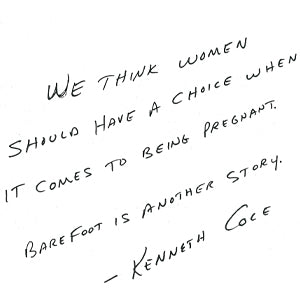 WE THINK WOMEN
SHOULD HAVE A CHOICE WHEN
IT COMES TO BEING PREGNANT.
BAREFOOT IS ANOTHER STORY.
– KENNETH COLE